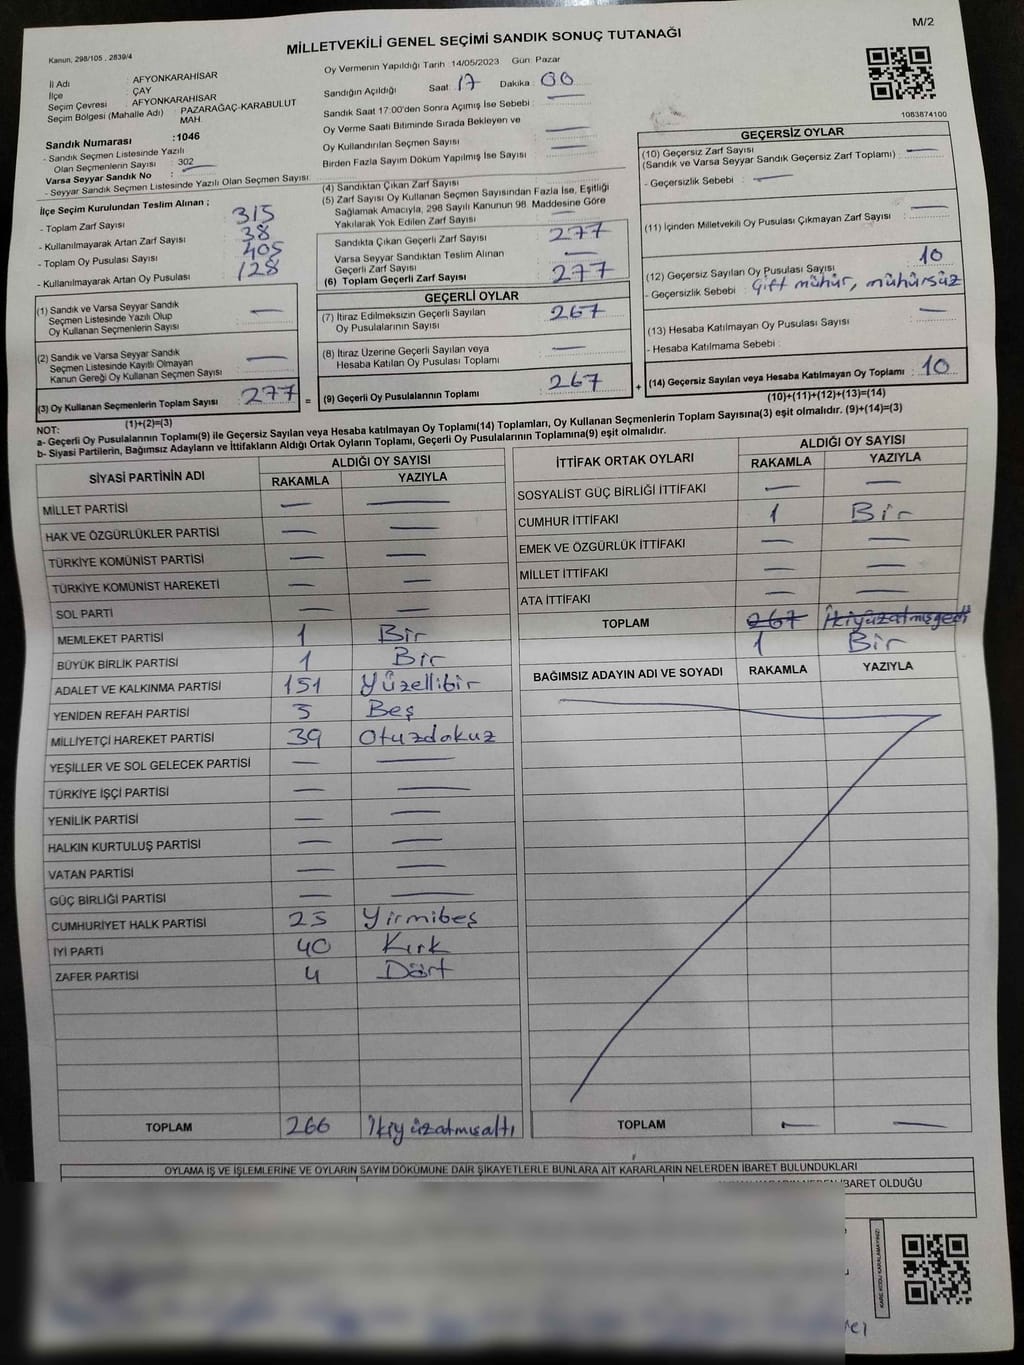 M/2
MİLLETVEKİLİ GENEL SEÇİMİ SANDIK SONUÇ TUTANAĞI
Kanun, 298/105 , 2839/4
İl Adı : AFYONKARAHİSAR
İlçe : ÇAY
Seçim Çevresi : AFYONKARAHİSAR
Seçim Bölgesi (Mahalle Adı) : PAZARAĞAÇ-KARABULUT MAH.
Sandık Numarası :1046
- Sandık Seçmen Listesinde Yazılı
Olan Seçmenlerin Sayısı : 302
Varsa Seyyar Sandık No : —
- Seyyar Sandık Seçmen Listesinde Yazılı Olan Seçmen Sayısı:
Oy Vermenin Yapıldığı Tarih :14/05/2023 Gün: Pazar
Sandığın Açıldığı Saat : 17 Dakika : 00
Sandık Saat 17:00'den Sonra Açımış İse Sebebi :
Oy Verme Saati Bitiminde Sırada Bekleyen ve
Oy Kullandırılan Seçmen Sayısı : —
Birden Fazla Sayım Döküm Yapılmış İse Sayısı : —
1083874100
İlçe Seçim Kurulundan Teslim Alınan ;
- Toplam Zarf Sayısı : 315
- Kullanılmayarak Artan Zarf Sayısı : 38
- Toplam Oy Pusulası Sayısı : 405
- Kullanılmayarak Artan Oy Pusulası : 128
(1) Sandık ve Varsa Seyyar Sandık
Seçmen Listesinde Yazılı Olup
Oy Kullanan Seçmenlerin Sayısı : —
(2) Sandık ve Varsa Seyyar Sandık
Seçmen Listesinde Kayıtlı Olmayan
Kanun Gereği Oy Kullanan Seçmen Sayısı : —
(3) Oy Kullanan Seçmenlerin Toplam Sayısı : 277 =
(1)+(2)=(3)
(4) Sandıktan Çıkan Zarf Sayısı
(5) Zarf Sayısı Oy Kullanan Seçmen Sayısından Fazla İse, Eşitliği
Sağlamak Amacıyla, 298 Sayılı Kanunun 98. Maddesine Göre
Yakılarak Yok Edilen Zarf Sayısı : —
Sandıkta Çıkan Geçerli Zarf Sayısı : 277
Varsa Seyyar Sandıktan Teslim Alınan
Geçerli Zarf Sayısı : —
(6) Toplam Geçerli Zarf Sayısı : 277
GEÇERLİ OYLAR
(7) İtiraz Edilmeksizin Geçerli Sayılan
Oy Pusulalarının Sayısı : 267
(8) İtiraz Üzerine Geçerli Sayılan veya
Hesaba Katılan Oy Pusulası Toplamı : —
(9) Geçerli Oy Pusulalarının Toplamı : 267 +
GEÇERSİZ OYLAR
(10) Geçersiz Zarf Sayısı
(Sandık ve Varsa Seyyar Sandık Geçersiz Zarf Toplamı) : —
- Geçersizlik Sebebi : —
(11) İçinden Milletvekili Oy Pusulası Çıkmayan Zarf Sayısı : —
(12) Geçersiz Sayılan Oy Pusulası Sayısı : 10
- Geçersizlik Sebebi : Çift mühür, mühürsüz
(13) Hesaba Katılmayan Oy Pusulası Sayısı : —
- Hesaba Katılmama Sebebi :
(14) Geçersiz Sayılan veya Hesaba Katılmayan Oy Toplamı : 10
(10)+(11)+(12)+(13)=(14)
NOT:
a- Geçerli Oy Pusulalarının Toplamı(9) ile Geçersiz Sayılan veya Hesaba katılmayan Oy Toplamı(14) Toplamları, Oy Kullanan Seçmenlerin Toplam Sayısına(3) eşit olmalıdır. (9)+(14)=(3)
b- Siyasi Partilerin, Bağımsız Adayların ve İttifakların Aldığı Ortak Oyların Toplamı, Geçerli Oy Pusulalarının Toplamına(9) eşit olmalıdır.
SİYASİ PARTİNİN ADI ALDIĞI OY SAYISI
RAKAMLA YAZIYLA
MİLLET PARTİSİ — —
HAK VE ÖZGÜRLÜKLER PARTİSİ — —
TÜRKİYE KOMÜNİST PARTİSİ — —
TÜRKİYE KOMÜNİST HAREKETİ — —
SOL PARTİ — —
MEMLEKET PARTİSİ 1 Bir
BÜYÜK BİRLİK PARTİSİ 1 Bir
ADALET VE KALKINMA PARTİSİ 151 Yüzellibir
YENİDEN REFAH PARTİSİ 5 Beş
MİLLİYETÇİ HAREKET PARTİSİ 39 Otuzdokuz
YEŞİLLER VE SOL GELECEK PARTİSİ — —
TÜRKİYE İŞÇİ PARTİSİ — —
YENİLİK PARTİSİ — —
HALKIN KURTULUŞ PARTİSİ — —
VATAN PARTİSİ — —
GÜÇ BİRLİĞİ PARTİSİ — —
CUMHURİYET HALK PARTİSİ 25 Yirmibeş
İYİ PARTİ 40 Kırk
ZAFER PARTİSİ 4 Dört
TOPLAM 266 İkiyüzatmışaltı
İTTİFAK ORTAK OYLARI ALDIĞI OY SAYISI
RAKAMLA YAZIYLA
SOSYALİST GÜÇ BİRLİĞİ İTTİFAKI — —
CUMHUR İTTİFAKI 1 Bir
EMEK VE ÖZGÜRLÜK İTTİFAKI — —
MİLLET İTTİFAKI — —
ATA İTTİFAKI — —
TOPLAM 267 İkiyüzatmışyedi
1 Bir
BAĞIMSIZ ADAYIN ADI VE SOYADI RAKAMLA YAZIYLA
TOPLAM — —
OYLAMA İŞ VE İŞLEMLERİNE VE OYLARIN SAYIM DÖKÜMÜNE DAİR ŞİKAYETLERLE BUNLARA AİT KARARLARIN NELERDEN İBARET BULUNDUKLARI
İBARET OLDUĞU
KARE KODU KARALAMAYINIZ!